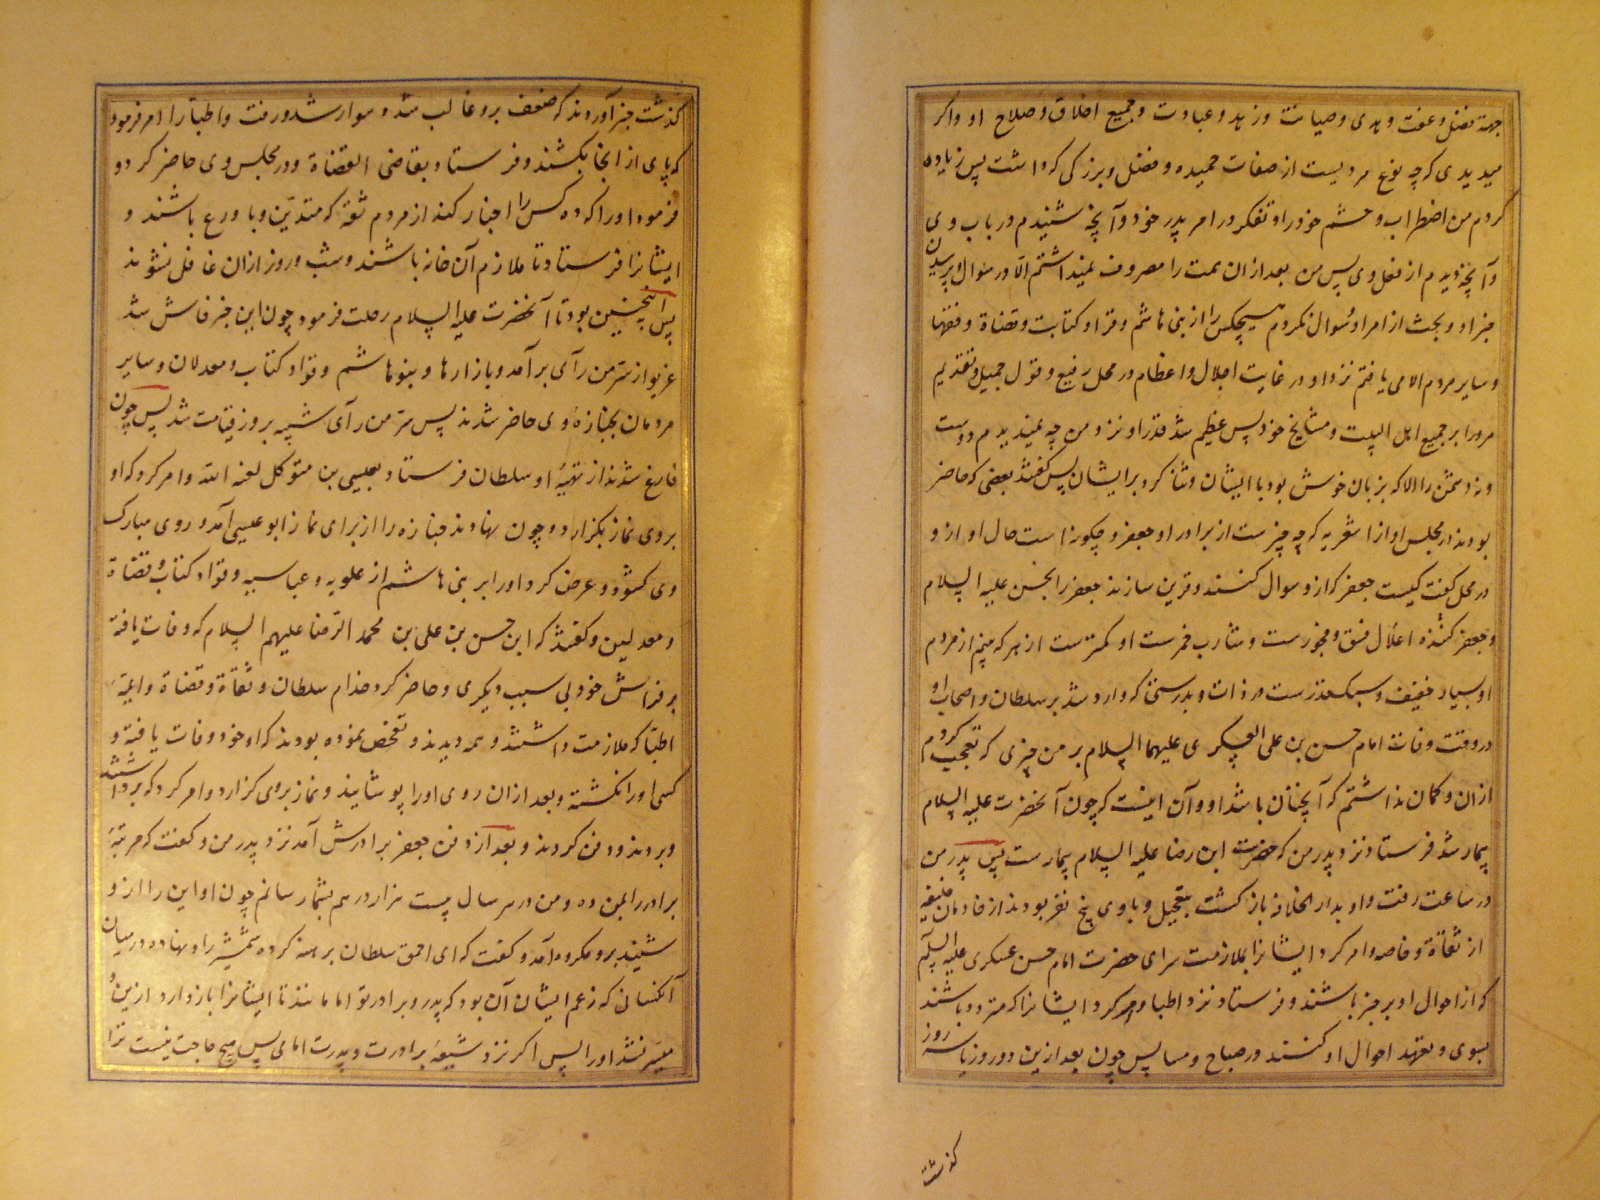 جهة فضل و عفت و هدی و صیانت و زهد و عبادت و جمیع اخلاق و صلاح او و اگر
میدیدی که چه نوع مردیست از صفات حمیده و فضل و بزرگی که داشت پس زیاده
کردم من اضطراب و خشم خود را و تفکر در امر پدر خود و آنچه شنیدم در باب وی
و آنچه دیدم از فعل وی پس من بعد از ان همت را مصروف نمیداشتم الا در سوال و پرسیدن
خبر او و بحث از امر او و سوال نکردم هیچکس را از بنی هاشم و قواد و کتابت و قضاة و فقها
و سایر مردم الا می یافتم نزد او در غایت اجلال و اعظام در محل رفیع و قول جمیل و تقدیم
مرورا بر جمیع اهل البیت و مشایخ خود پس عظیم شد قدر او نزد من چه ندیدم دوست
و نه دشمن را الا که بزبان خوش بود با ایشان و ثنا کرد بر ایشان پس گفتند بعضی که حاضر
بودند در مجلس او از اشعریه که چه چیزست از برادر او جعفر و چگونه است حال او از و
در محل گفت کیست جعفر که ازو سوال کنند و قرین سازند جعفر را بحسن علیه السلام
و جعفر کننده اعلال فسق و فجورست و شارب خمرست او کمترست از هر که بینم از مردم
او بسیار خفیف و سبکقدرست در ذات و بدرستی که وارد شد بر سلطان و اصحاب او
در وقت وفات امام حسن بن علی العسکری علیهما السلام بر من چیزی که تعجب کردم
ازان و گمان نداشتم که آنچنان باشد او و آن اینست که چون آنحضرت علیه السلام
بیمار شد فرستاد نزد پدر من که حضرت ابن رضا علیه السلام بیمارست پس پدر من
در ساعت رفت و او بدار الخلافه باز گشت بتعجیل و با وی پنج نفر بودند از خادمان خلیفه
از ثقاة و خاصه و امر کرد ایشانرا بملازمت سرای حضرت امام حسن عسکری علیه السلام
که از احوال او بر خبر باشند و فرستاد نزد اطبا و امر کرد ایشانرا که متردد باشند
بسوی و بتعهد احوال او کنند در صباح و مسا پس چون بعد ازین دو روز یا سه روز
گذشت
گذشت خبر آوردند که ضعف برو غالب شد و سوار شد و رفت و اطبا را امر فرمود
که پای از انجا نکشند و فرستاد بقاضی القضاة و در مجلس وی حاضر کرد و
فرمود او را که ده کس را اخبار کند از مردم ثقة که متدین و با ورع باشند و
ایشانرا فرستاد تا ملازم آن خانه باشند و شب و روز ازان غافل نشوند
پس اینچنین بود تا آنحضرت علیه السلام رحلت فرمود چون این خبر فاش شد
غریو از سر من رآی بر آمد و بازارها و بنو هاشم و قواد کتاب و معدلان و سایر
مردمان بجنازه وی حاضر شدند پس سر من رآی شبیه بروز قیامت شد پس چون
فارغ شدند از تهیه او سلطان فرستاد بعیسی بن متوکل لعنه الله و امر کرد که او
بروی نماز بگزارد و چون نهادند جنازه را از برای نماز ابو عیسی آمد و روی مبارک
وی گشوده و عرض کرد او را بر بنی هاشم از علویه و عباسیه و قواد کتاب و قضاة
و معدلین و گفتند که ابن حسن بن علی بن محمد الرضا علیهم السلام که وفات یافته
بر فراش خود بی سبب دیگری و حاضر کرد خدام سلطان و ثقاة و قضاة و ایمه
اطبا که ملازمت داشتند و همه دیدند و تفحص نموده بودند که او خود وفات یافته و
کسی او را نکشته و بعد ازان روی او را پوشانید و نماز بروی گزارد و امر کرد که برداشتند
و بردند و دفن کردند و بعد از دفن جعفر برادرش آمد نزد پدر من و گفت که مرتبه
برادر را بمن ده و من در هر سال بیست هزار درهم بشما رسانم چون او این را ازو
شنید برو مکروه آمد و گفت که ای احمق سلطان برهنه کرده شمشیر را و نهاده در میان
آنکسانی که زعم ایشان آن بود که پدر و برادر تو امامانند تا ایشانرا باز دارد ازین و
میسر نشد او را پس اگر نزد شیعه برادرت و پدرت امامی پس هیچ حاجت نیست ترا